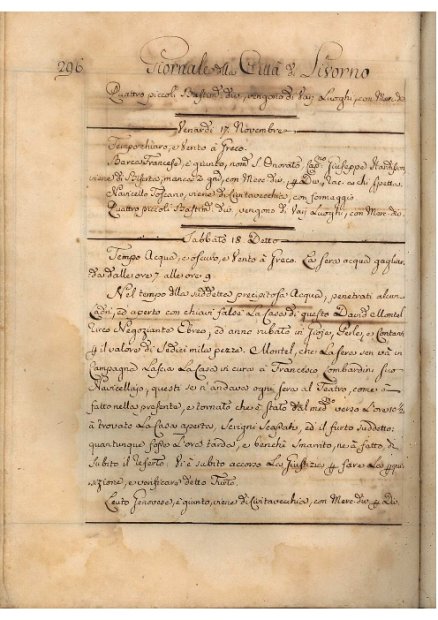 296 Giornale della Città di Livorno
Quattro piccoli Bastim.ti div.i vengono di Varij Luoghi, con Merc. div.
Venardi 17. Novembre
Tempo chiaro, e Vento à Greco.
Barca Francese, è giunto, nom.a S. Onorato, Cap.no Giuseppe
viene di Biserta, manca 2 gni, con Merc. div.e, p. Div.i
Navicello Toscano, viene di Civitavecchia, con formaggio
Quattro piccoli Bastim.ti div.i vengono di Varij Luoghi, con Merc. div.
Sabbato 18. Detto
Tempo Acqua, e oscuro, e Vento à Greco. La sera acqua gagliar-
da dalle ore 7 alle ore 9
Nel tempo della suddetta precipitosa Acqua, penetrati alcuni
Ladri, ed aperto con chiavi false La Casa di questo David Montel
Ricco Negoziante Ebreo, ed anno rubato in Gioje, Perle, e Contanti
p. il valore di Sedici mila pezze. Montel, che La sera sen và in
Campagna Lascia La Casa in cura à Francesco Lombardini suo
Navicellajo, questi se n'andava ogni sera al Teatro, come à
fatto nella presente, e tornato che è stato dal med.mo verso L'ore
à trovato La Casa aperta, Scrigni scassati, ed il furto suddetto:
quantunque fosse L'ora tarda, e benche smarrito, ne à fatto di
subito il referto. Vi è subito accorso La Giustizia p. fare La perqui-
sizione, e verificare detto Furto.
Leuto Genovese, è giunto, viene di Civitavecchia, con Merc. div.e p. Div.